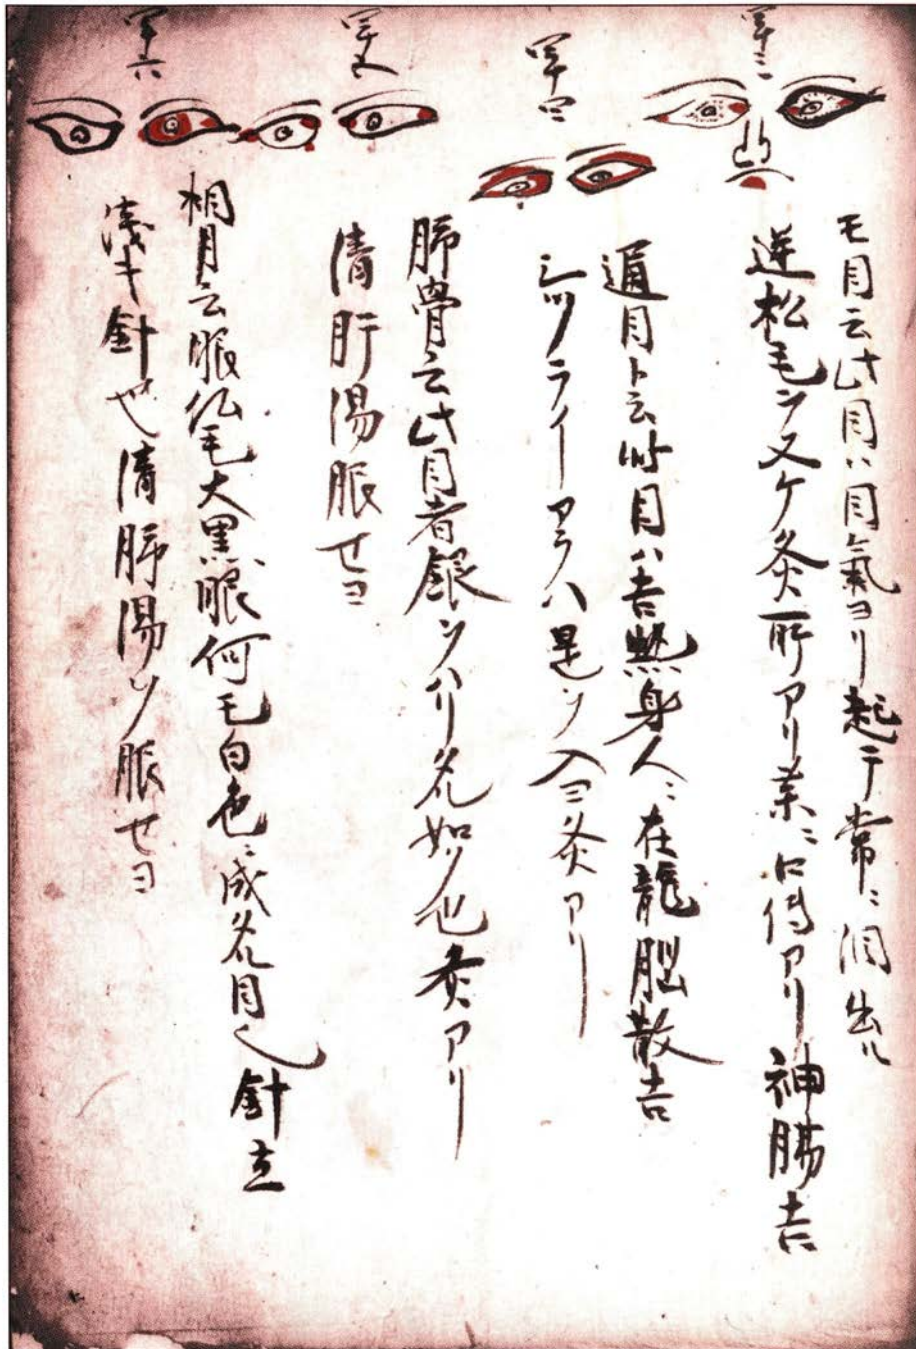 四十三
モ目云此目ハ目氣ヨリ起テ常ニ泪出ル
逆松毛ヲヌケ灸所アリ薬ニ口傳アリ神腸吉
四十四
通目ト云此目ハ吉熱身人ニ在龍脳散吉
シツライーアラハ是ヲ入ヨ灸アリ
四十五
肺胃云此目者銀ヲハリタル如ク也灸アリ
清肝湯服セヨ
四十六
相目云眼仏毛大黒眼何モ白色ニ成タル目也針立
浅キ針也清肺湯ヲ服セヨ